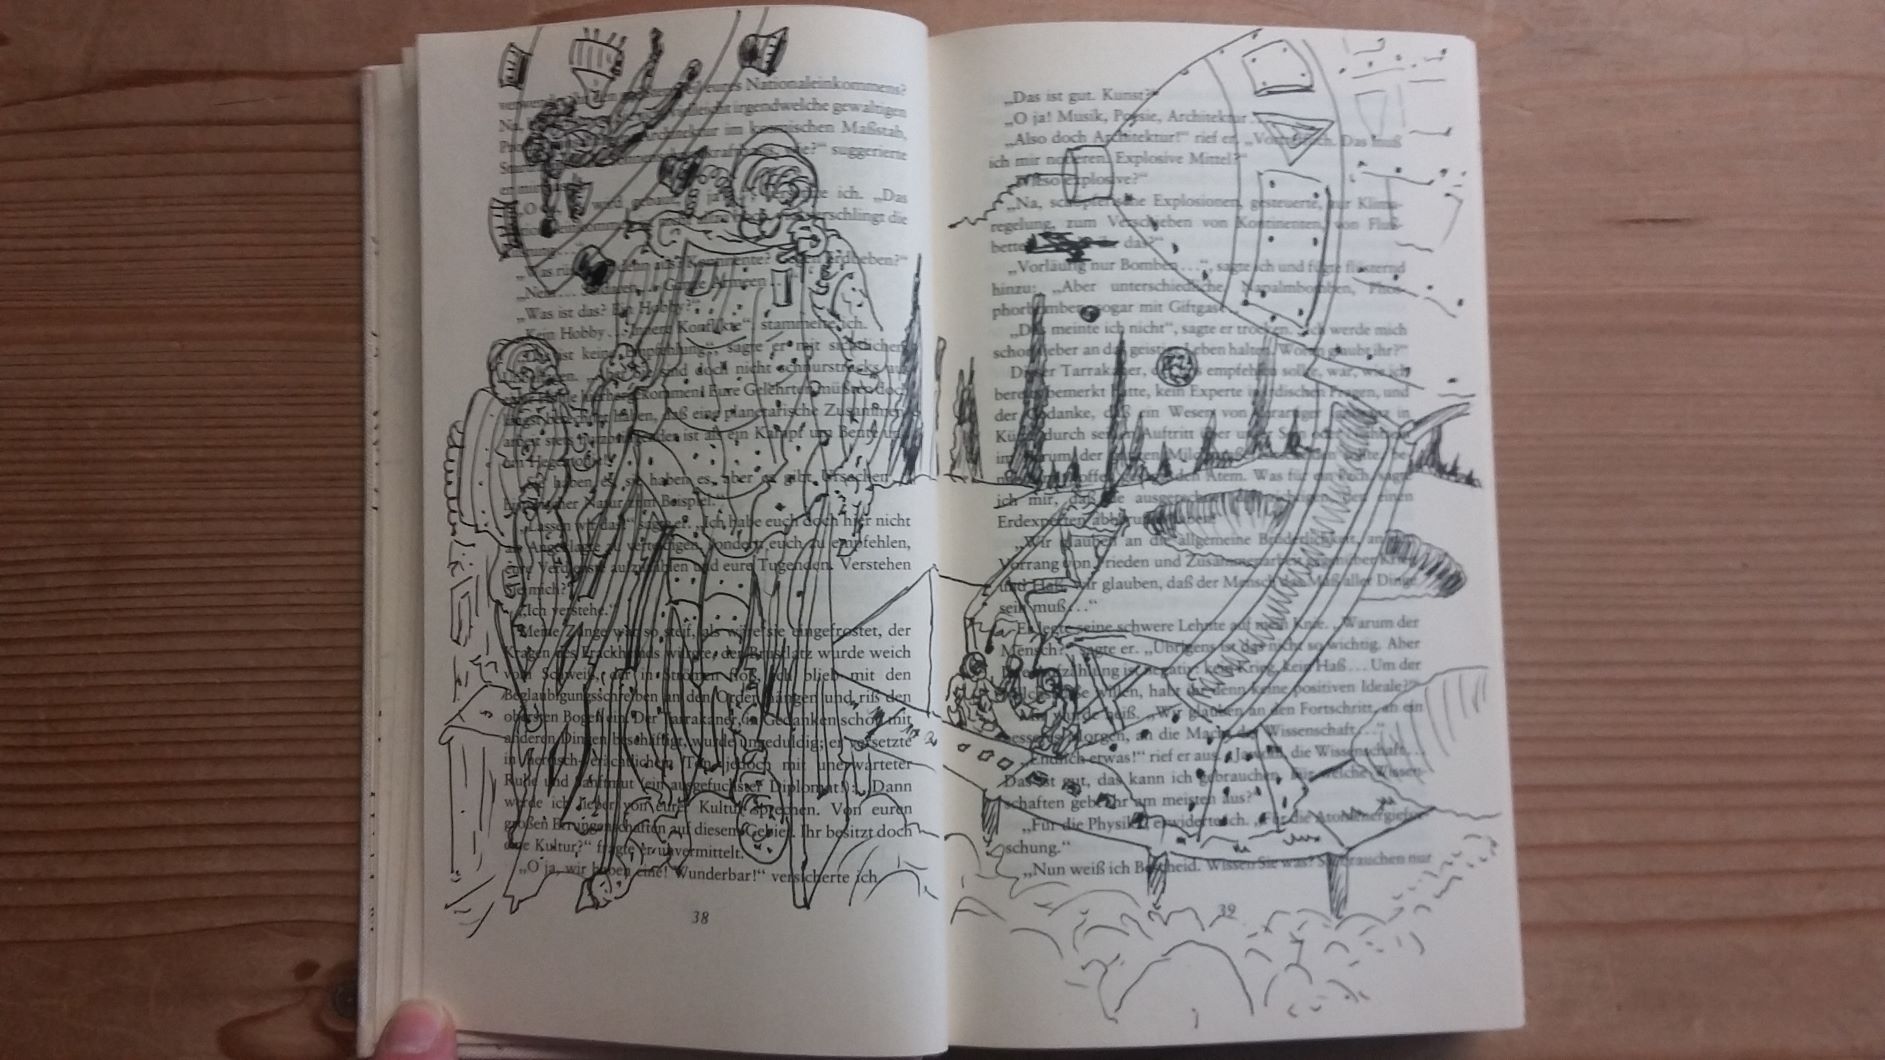 verwendet eures Nationaleinkommens?
Na, vielleicht irgendwelche gewaltigen
Architektur im kosmischen Maßstab,
suggerierte
er mir
„O wird gebaut ich. „Das
verschlingt die
„Was denn aus? Kontinente? Erdbeben?“
„Nein... Soldaten... Ganze Armeen...
„Was ist das? Ein Hobby?“
„Kein Hobby... Innere Konflikte“ stammelte ich.
ist keine Empfehlung“, sagte er mit sichtlichem
sind doch nicht schnurstracks aus
hergekommen! Eure Gelehrten müßten doch
haben, daß eine planetarische Zusammen-
arbeit stets ist als ein Kampf um Beute und
haben es, sie haben es, aber es gibt Ursachen
Natur zum Beispiel.
„Lassen wir das!“ sagte er. „Ich habe euch doch hier nicht
als Angeklagte zu verteidigen, sondern euch zu empfehlen,
eure Verdienste aufzuzählen und eure Tugenden. Verstehen
Sie mich?“
„Ich verstehe.“
Meine Zunge war so steif, als wäre sie eingefrostet, der
Kragen des Frackhemds würgte, der Brustlatz wurde weich
vom Schweiß, der in Strömen floß, ich blieb mit den
Beglaubigungsschreiben an den Orden hängen und riß den
obersten Bogen ein. Der Tarrakaner, in Gedanken schon mit
anderen Dingen beschäftigt, wurde ungeduldig; er versetzte
in herrisch-verächtlichem Ton, jedoch mit unerwarteter
Ruhe und Sanftmut (ein ausgefuchster Diplomat!): „Dann
werde ich lieber von eurer Kultur sprechen. Von euren
großen Errungenschaften auf diesem Gebiet. Ihr besitzt doch
eine Kultur?“ fragte er unvermittelt.
„O ja, wir haben eine! Wunderbar!“ versicherte ich.
38
„Das ist gut. Kunst?“
„O ja! Musik, Poesie, Architektur
„Also doch Architektur!“ rief er. „Vortrefflich. Das muß
ich mir notieren. Explosive Mittel?“
„Wieso explosive?“
„Na, schöpferische Explosionen, gesteuerte, zur Klima-
regelung, zum Verschieben von Kontinenten, von Fluß-
betten das?“
„Vorläufig nur Bomben...“, sagte ich und fügte flüsternd
hinzu: „Aber unterschiedliche, Napalmbomben, Phos-
phorbomben, sogar mit Giftgas
„Das meinte ich nicht“, sagte er trocken. „Ich werde mich
schon lieber an das geistige Leben halten. Woran glaubt ihr?“
Dieser Tarrakaner, der uns empfehlen sollte, war, wie ich
bereits bemerkt hatte, kein Experte in irdischen Fragen, und
der Gedanke, daß ein Wesen von derartiger in
Kürze durch seinen Auftritt über unser Sein oder Nichtsein
im Forum der ganzen
den Atem. Was für ein Pech, sagte
ich mir, daß sie ausgerechnet den einen
Erdexperten abberufen haben!
„Wir glauben an die allgemeine Brüderlichkeit, an den
Vorrang von Frieden und Zusammenarbeit gegenüber Krieg
und Haß, wir glauben, daß der Mensch das Maß aller Dinge
sein muß...“
Er legte seine schwere Lehnte auf mein Knie. „Warum der
Mensch?“ sagte er. „Übrigens ist das nicht so wichtig. Aber
Aufzählung ist negativ: kein Krieg, kein Haß... Um der
willen, habt ihr denn keine positiven Ideale?“
Mir wurde heiß. „Wir glauben an den Fortschritt, an ein
besseres Morgen, an die Macht der Wissenschaft...“
„Endlich etwas!“ rief er aus. „Jawohl, die Wissenschaft...
Das ist gut, das kann ich gebrauchen. Für welche Wissen-
schaften gebt ihr am meisten aus?“
„Für die Physik“, erwiderte ich. „Für die Atomenergiefor-
schung.“
„Nun weiß ich Bescheid. Wissen Sie was? Sie brauchen nur
39